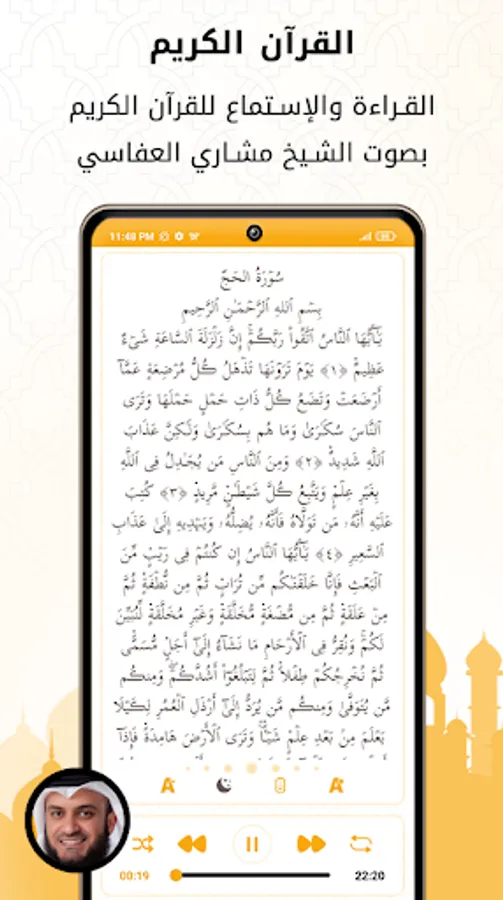 القرآن الكريم
القراءة والإستماع للقرآن الكريم
بصوت الشيخ مشاري العفاسي
11:48 PM
سُورَةُ الحَجّ
بِسْمِ ٱللهِ ٱلرَّحْمَـٰنِ ٱلرَّحِيمِ
يَـٰٓأَيُّهَا ٱلنَّاسُ ٱتَّقُوا۟ رَبَّكُمْ ۚ إِنَّ زَلْزَلَةَ ٱلسَّاعَةِ شَىْءٌ
عَظِيمٌ ﴿١﴾ يَوْمَ تَرَوْنَهَا تَذْهَلُ كُلُّ مُرْضِعَةٍ عَمَّآ
أَرْضَعَتْ وَتَضَعُ كُلُّ ذَاتِ حَمْلٍ حَمْلَهَا وَتَرَى
ٱلنَّاسَ سُكَـٰرَىٰ وَمَا هُم بِسُكَـٰرَىٰ وَلَـٰكِنَّ عَذَابَ
ٱللَّهِ شَدِيدٌ ﴿٢﴾ وَمِنَ ٱلنَّاسِ مَن يُجَـٰدِلُ فِى ٱللَّهِ
بِغَيْرِ عِلْمٍ وَيَتَّبِعُ كُلَّ شَيْطَـٰنٍ مَّرِيدٍ ﴿٣﴾ كُتِبَ
عَلَيْهِ أَنَّهُۥ مَن تَوَلَّاهُ فَأَنَّهُۥ يُضِلُّهُۥ وَيَهْدِيهِ إِلَىٰ عَذَابِ
ٱلسَّعِيرِ ﴿٤﴾ يَـٰٓأَيُّهَا ٱلنَّاسُ إِن كُنتُمْ فِى رَيْبٍ مِّنَ
ٱلْبَعْثِ فَإِنَّا خَلَقْنَـٰكُم مِّن تُرَابٍ ثُمَّ مِن نُّطْفَةٍ ثُمَّ
مِنْ عَلَقَةٍ ثُمَّ مِن مُّضْغَةٍ مُّخَلَّقَةٍ وَغَيْرِ مُخَلَّقَةٍ لِّنُبَيِّنَ
لَكُمْ ۚ وَنُقِرُّ فِى ٱلْأَرْحَامِ مَا نَشَآءُ إِلَىٰٓ أَجَلٍ مُّسَمًّى
ثُمَّ نُخْرِجُكُمْ طِفْلًا ثُمَّ لِتَبْلُغُوٓا۟ أَشُدَّكُمْ ۖ وَمِنكُم
مَّن يُتَوَفَّىٰ وَمِنكُم مَّن يُرَدُّ إِلَىٰٓ أَرْذَلِ ٱلْعُمُرِ لِكَيْلَا
يَعْلَمَ مِنۢ بَعْدِ عِلْمٍ شَيْـًٔا ۚ وَتَرَى ٱلْأَرْضَ هَامِدَةً فَإِذَآ
00:19
22:20